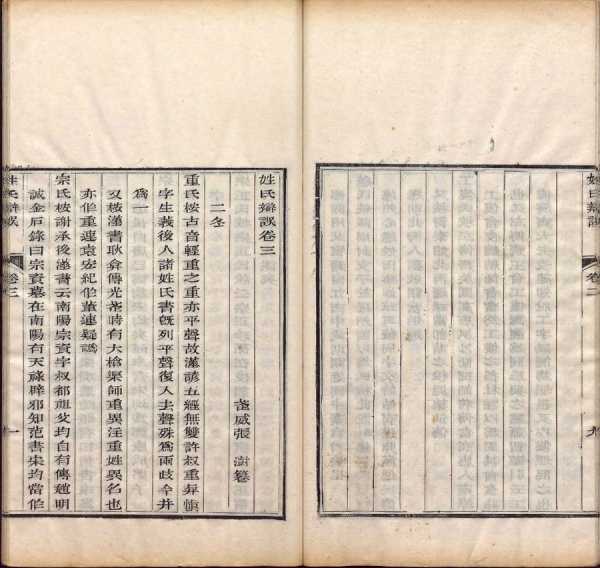 姓氏辯誤
卷二
九
姓氏辯誤卷三
武威張 澍纂
二冬
重氏按古音輕重之重亦平聲故漢諺五經無雙許叔重昇慎
字生義後人諸姓氏書旣列平聲復入去聲殊爲兩歧今并
爲一
又按漢書耿弇傳光武時有大槍渠帥重異注重姓異名也
亦作重連袁宏紀作董連疑譌
宗氏按謝承後漢書云南陽宗資字叔都祖父均自有傳趙明
誠金石錄曰宗資墓在南陽有天祿辟邪知范書宋均當作
姓氏辯誤
卷三
一